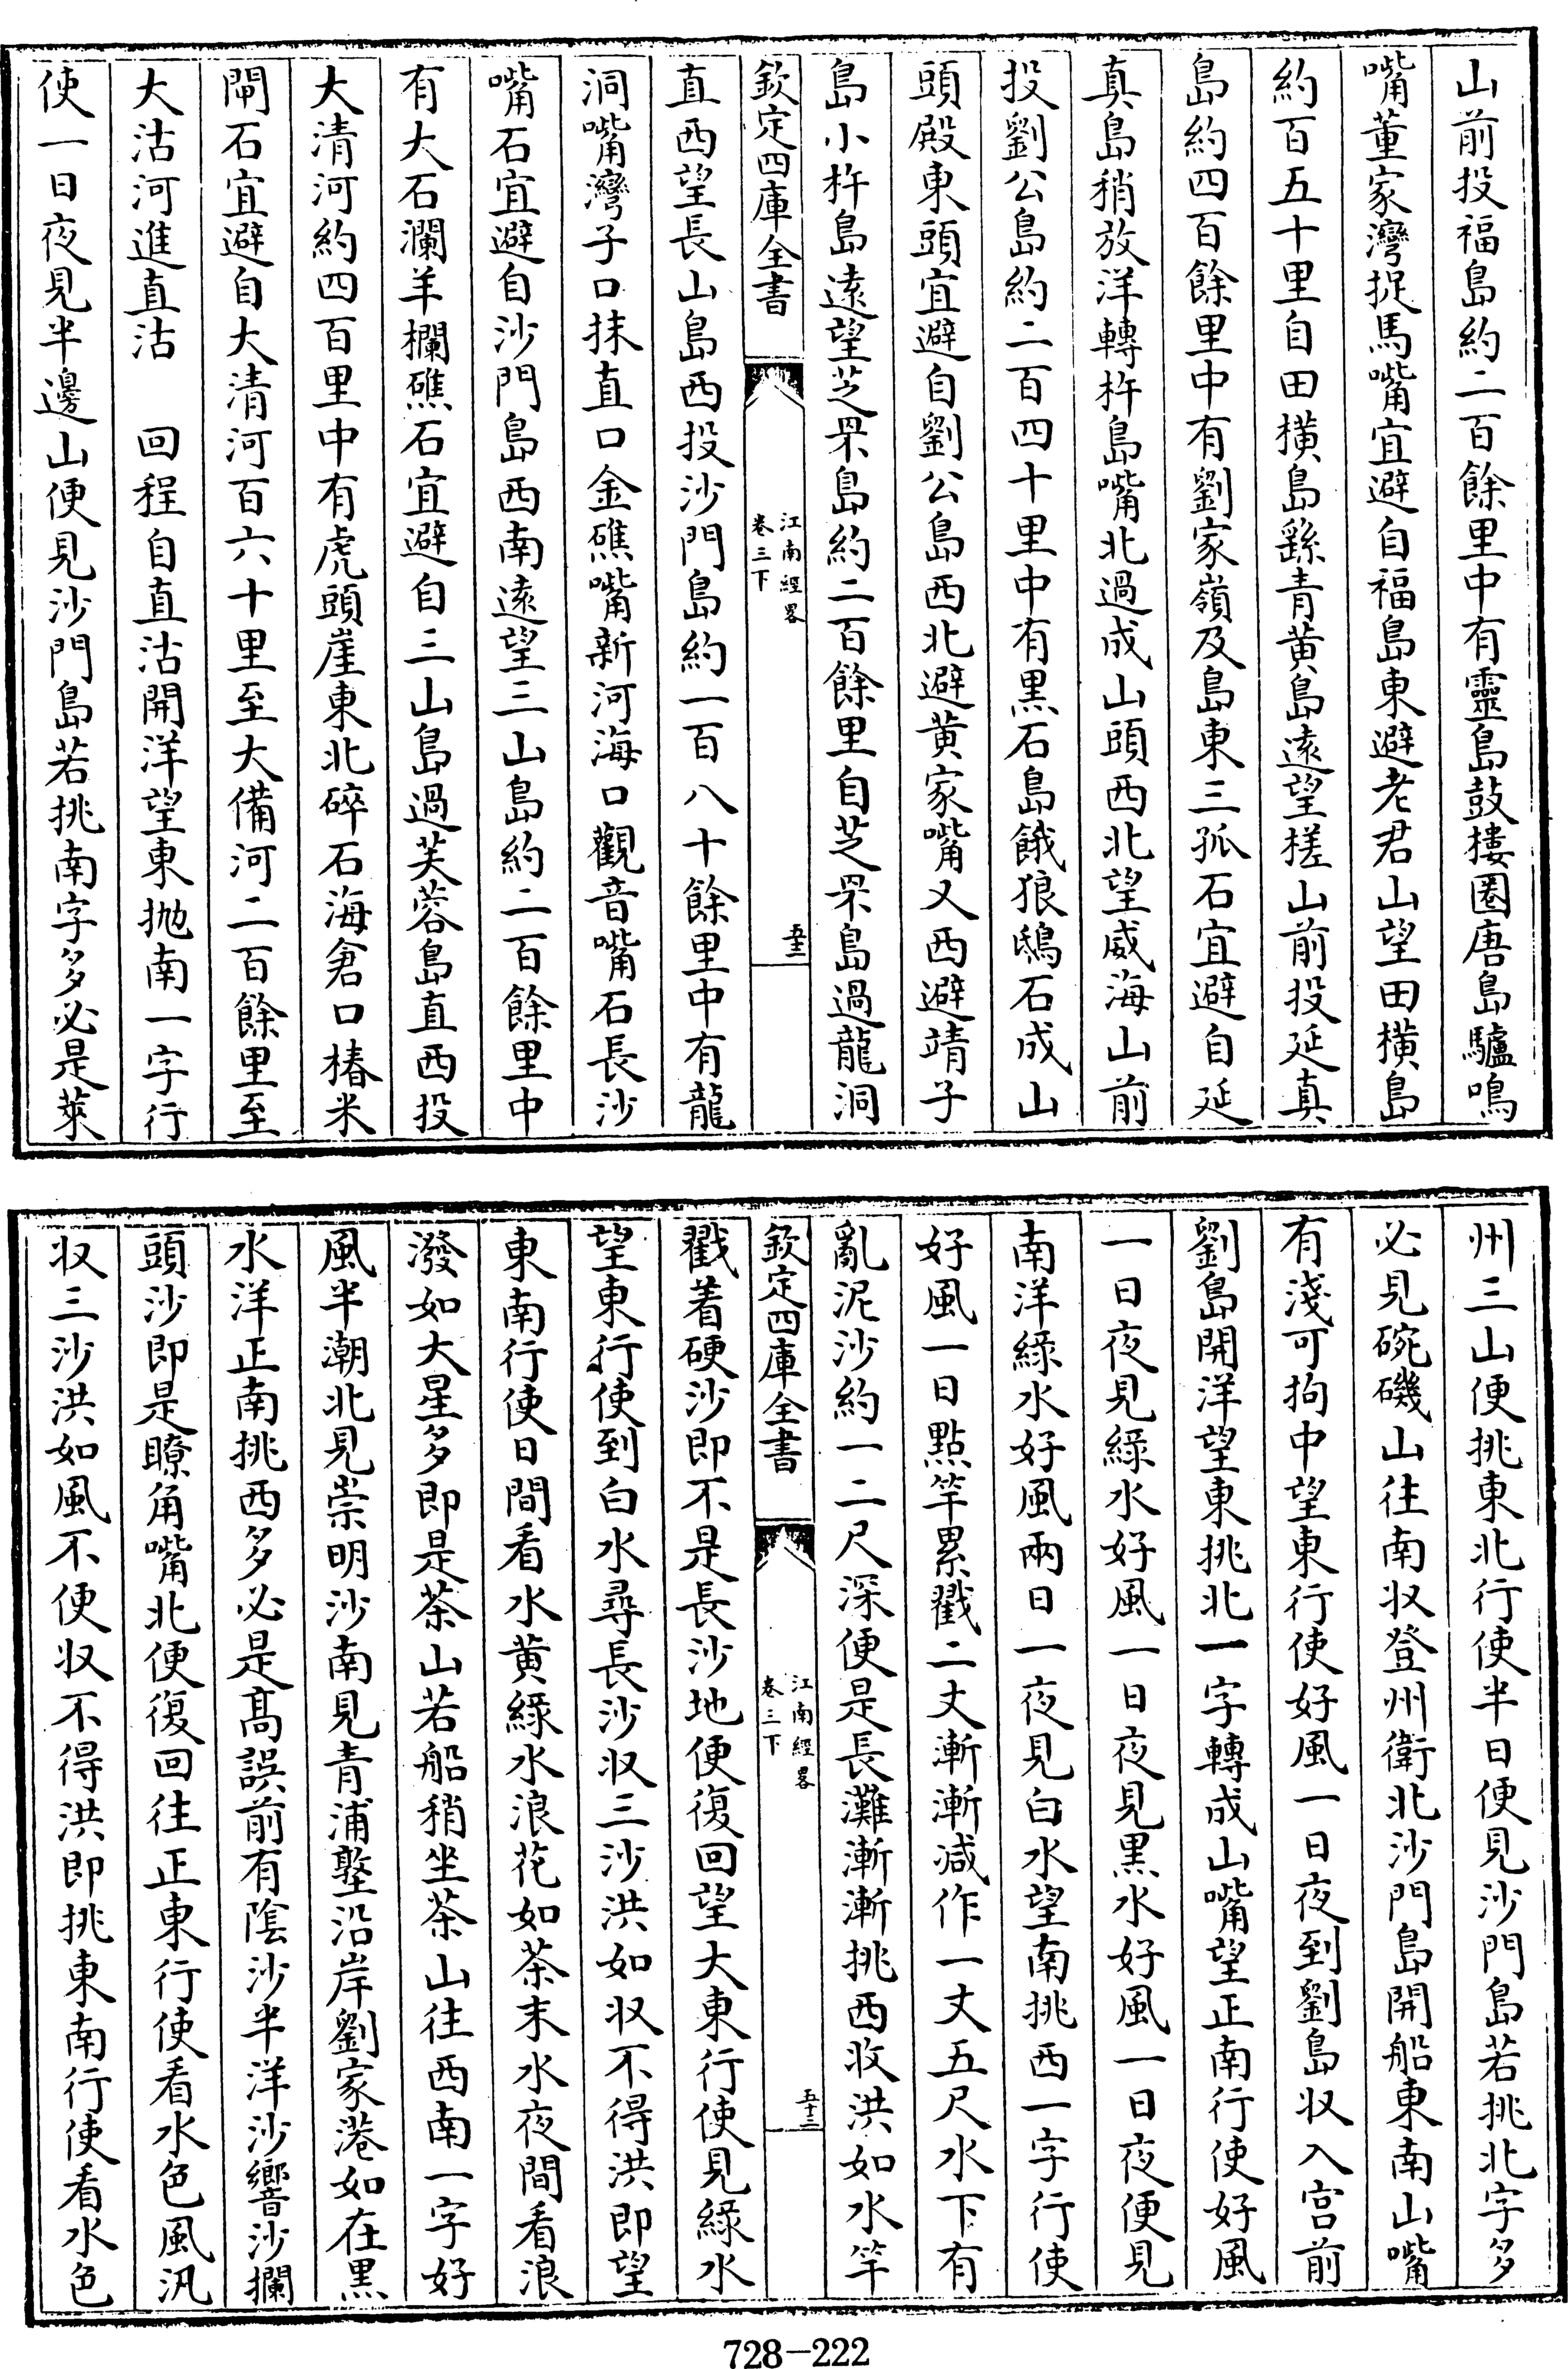 山前投福島約二百餘里中有靈島鼓樓圏唐島驢鳴
嘴董家灣捉馬嘴宜避自福島東避老君山望田横島
約百五十里自田横島繇青黄島逺望槎山前投延真
島約四百餘里中有劉家嶺及島東三孤石宜避自延
真島稍放洋轉杵島嘴北過成山頭西北望威海山前
投劉公島約二百四十里中有黒石島餓狼鴟石成山
頭殿東頭宜避自劉公島西北避黄家嘴又西避靖子
島小杵島逺望芝罘島約二百餘里自芝罘島過龍洞
欽定四庫全書
江南經畧
卷三下
五十二
直西望長山島西投沙門島約一百八十餘里中有龍
洞嘴灣子口抹直口金礁嘴新河海口觀音嘴石長沙
嘴石宜避自沙門島西南逺望三山島約二百餘里中
有大石瀾羊欄礁石宜避自三山島過芙蓉島直西投
大清河約四百里中有虎頭崖東北碎石海倉口樁米
閘石宜避自大清河百六十里至大備河二百餘里至
大沽河進直沽　回程自直沽開洋望東抛南一字行
使一日夜見半邊山便見沙門島若挑南字多必是萊
州三山便挑東北行使半日便見沙門島若挑北字多
必見碗磯山往南収登州衛北沙門島開船東南山嘴
有淺可拘中望東行使好風一日夜到劉島収入宫前
劉島開洋望東挑北一字轉成山嘴望正南行使好風
一日夜見綠水好風一日夜見黒水好風一日夜便見
南洋綠水好風兩日一夜見白水望南挑西一字行使
好風一日點竿累戳二丈漸漸減作一丈五尺水下有
亂泥沙約一二尺深便是長灘漸漸挑西收洪如水竿
欽定四庫全書
江南經畧
卷三下
五十三
戳着硬沙即不是長沙地便復回望大東行使見綠水
望東行使到白水尋長沙収三沙洪如収不得洪即望
東南行使日間看水黄綠水浪花如茶末水夜間看浪
潑如大星多即是茶山若船稍坐茶山往西南一字好
風半潮北見崇明沙南見青浦墪沿岸劉家港如在黒
水洋正南挑西多必是髙誤前有隂沙半洋沙響沙攔
頭沙即是瞭角嘴北便復回往正東行使看水色風汛
収三沙洪如風不便収不得洪即挑東南行使看水色
728-222